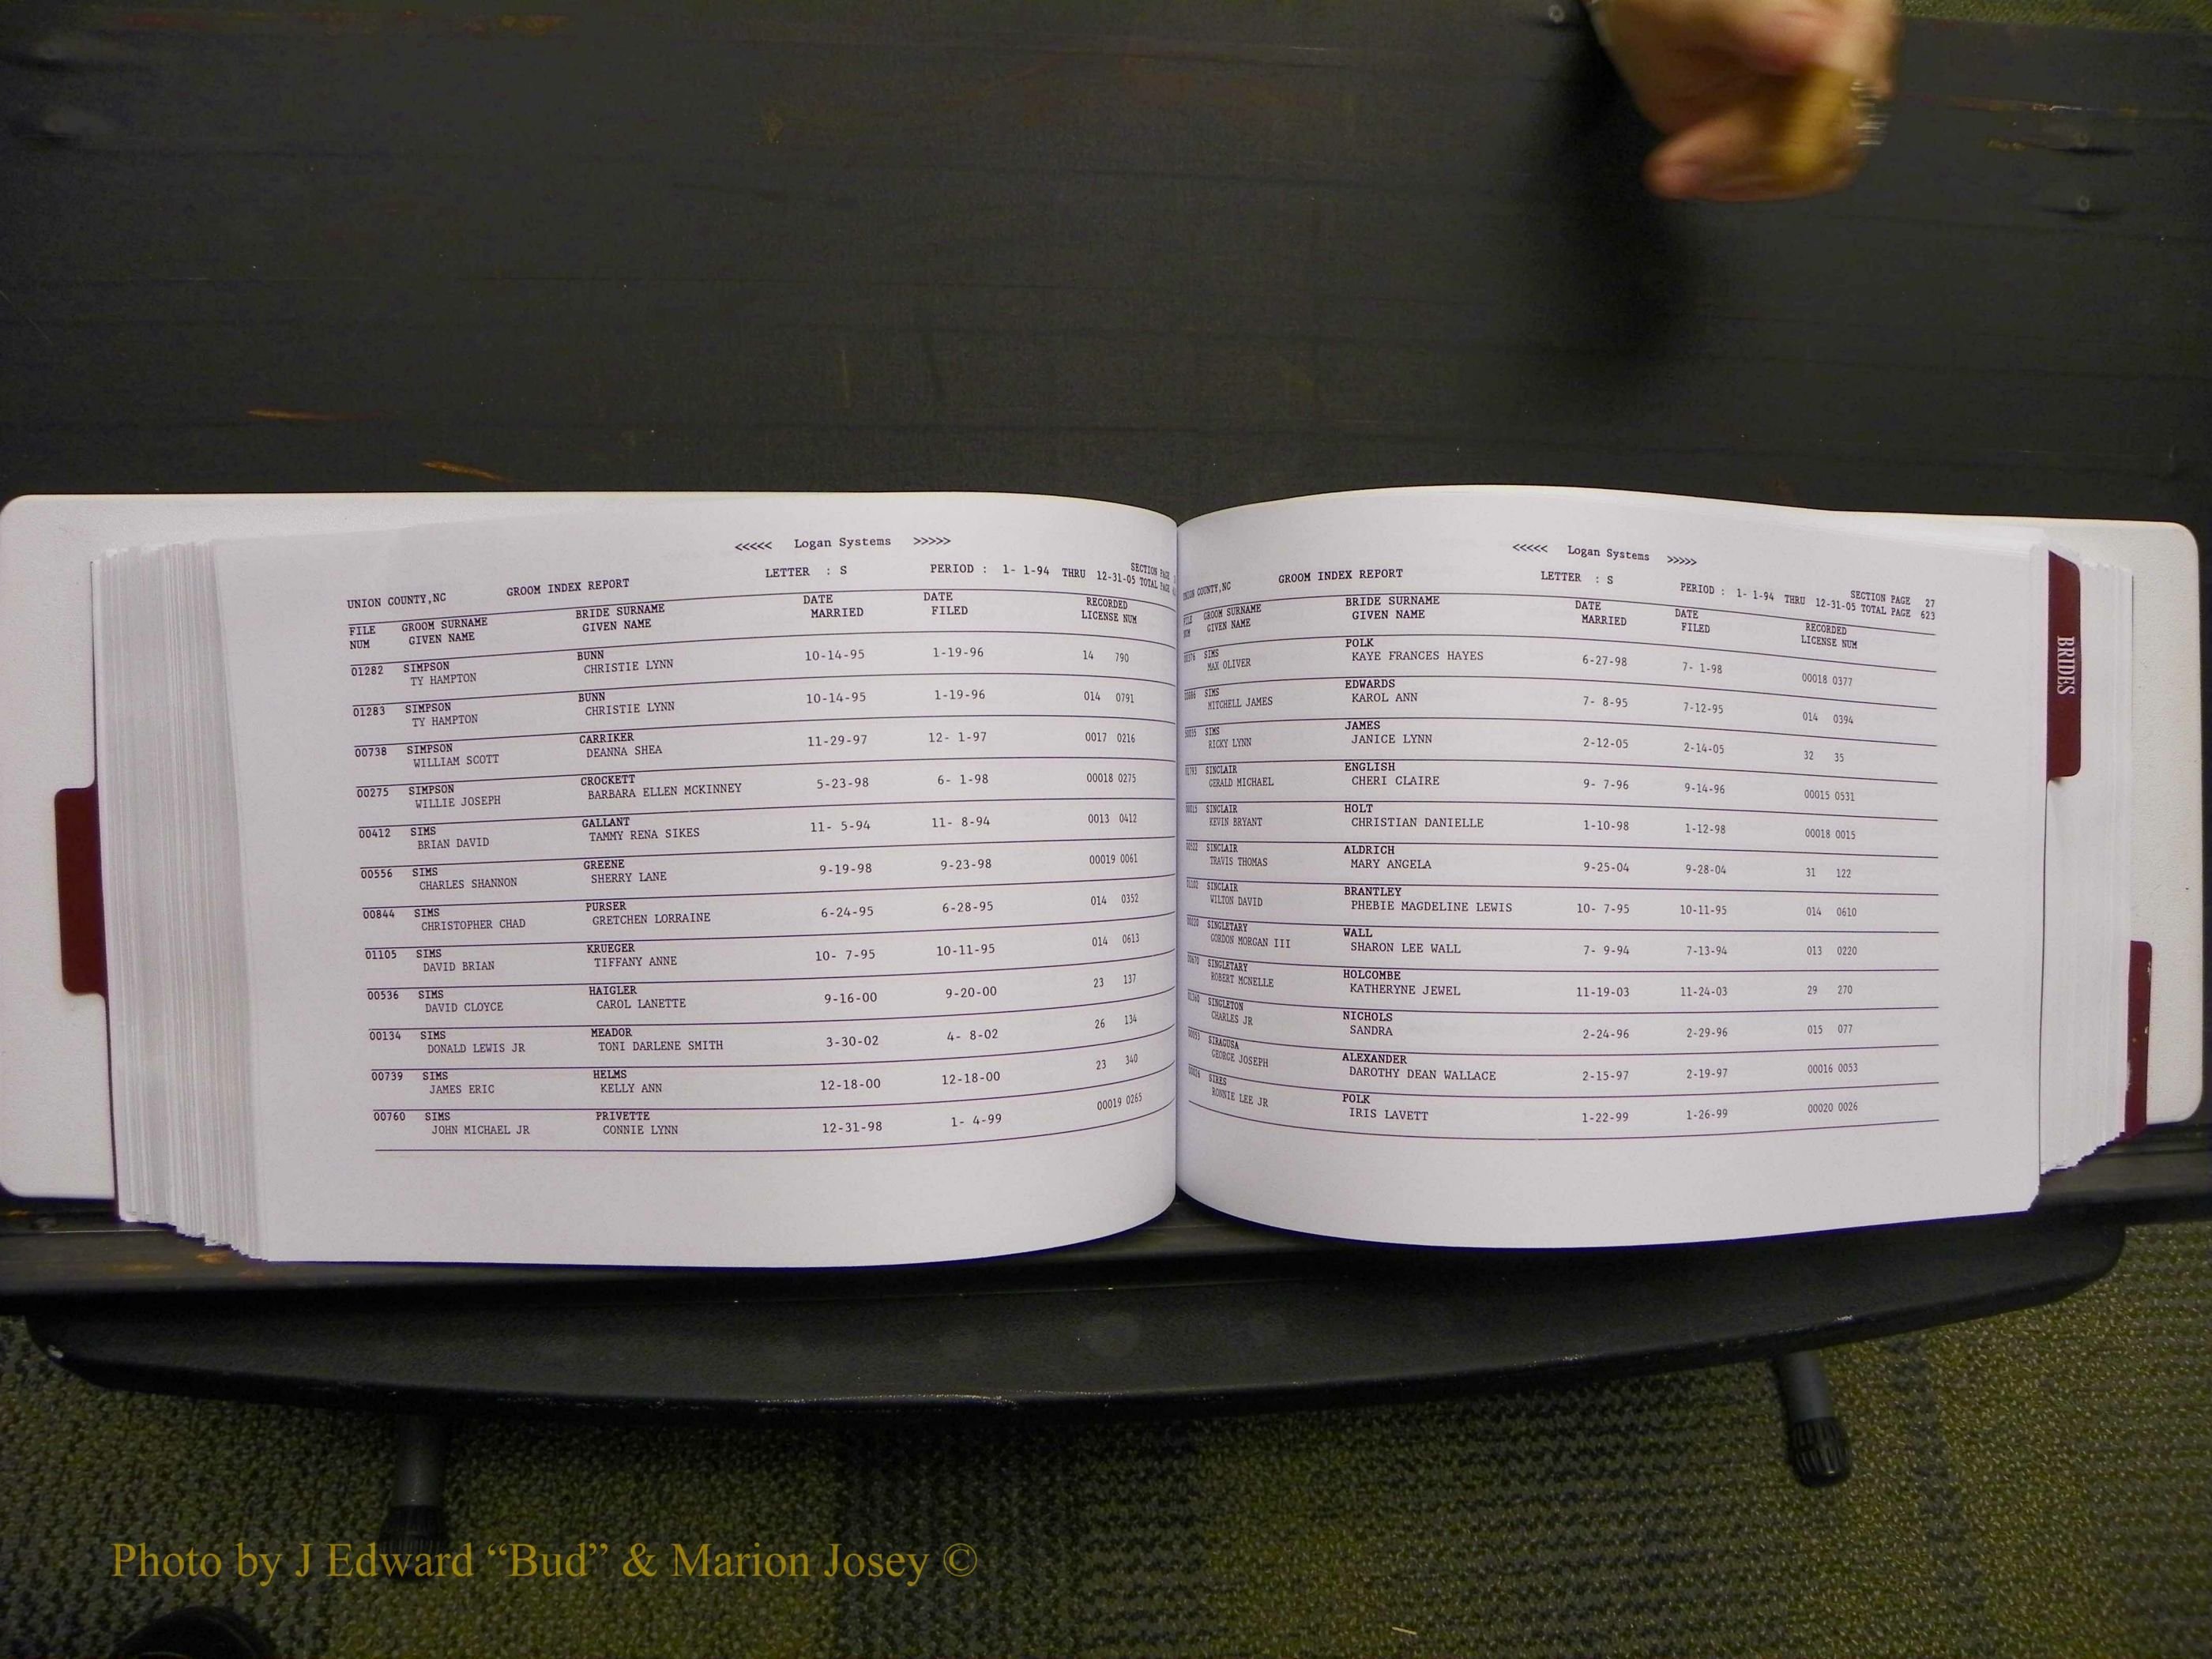 <<<<< Logan Systems >>>>>
UNION COUNTY,NC GROOM INDEX REPORT LETTER : S PERIOD : 1- 1-94 THRU 12-31-05 SECTION PAGE
TOTAL PAGE
FILE GROOM SURNAME BRIDE SURNAME DATE DATE RECORDED
NUM GIVEN NAME GIVEN NAME MARRIED FILED LICENSE NUM
01282 SIMPSON BUNN 10-14-95 1-19-96 14 790
TY HAMPTON CHRISTIE LYNN
01283 SIMPSON BUNN 10-14-95 1-19-96 014 0791
TY HAMPTON CHRISTIE LYNN
00738 SIMPSON CARRIKER 11-29-97 12- 1-97 0017 0216
WILLIAM SCOTT DEANNA SHEA
00275 SIMPSON CROCKETT 5-23-98 6- 1-98 00018 0275
WILLIE JOSEPH BARBARA ELLEN MCKINNEY
00412 SIMS GALLANT 11- 5-94 11- 8-94 0013 0412
BRIAN DAVID TAMMY RENA SIKES
00556 SIMS GREENE 9-19-98 9-23-98 00019 0061
CHARLES SHANNON SHERRY LANE
00844 SIMS PURSER 6-24-95 6-28-95 014 0352
CHRISTOPHER CHAD GRETCHEN LORRAINE
01105 SIMS KRUEGER 10- 7-95 10-11-95 014 0613
DAVID BRIAN TIFFANY ANNE
00536 SIMS HAIGLER 9-16-00 9-20-00 23 137
DAVID CLOYCE CAROL LANETTE
00134 SIMS MEADOR 3-30-02 4- 8-02 26 134
DONALD LEWIS JR TONI DARLENE SMITH
00739 SIMS HELMS 12-18-00 12-18-00 23 340
JAMES ERIC KELLY ANN
00760 SIMS PRIVETTE 12-31-98 1- 4-99 00019 0265
JOHN MICHAEL JR CONNIE LYNN
<<<<< Logan Systems >>>>>
UNION COUNTY,NC GROOM INDEX REPORT LETTER : S PERIOD : 1- 1-94 THRU 12-31-05 SECTION PAGE 27
TOTAL PAGE 623
GROOM SURNAME BRIDE SURNAME DATE DATE RECORDED
GIVEN NAME GIVEN NAME MARRIED FILED LICENSE NUM
SIMS POLK 6-27-98 7- 1-98 00018 0377
MAX OLIVER KAYE FRANCES HAYES
SIMS EDWARDS 7- 8-95 7-12-95 014 0394
MITCHELL JAMES KAROL ANN
SIMS JAMES 2-12-05 2-14-05 32 35
RICKY LYNN JANICE LYNN
SINCLAIR ENGLISH 9- 7-96 9-14-96 00015 0531
GERALD MICHAEL CHERI CLAIRE
SINCLAIR HOLT 1-10-98 1-12-98 00018 0015
KEVIN BRYANT CHRISTIAN DANIELLE
SINCLAIR ALDRICH 9-25-04 9-28-04 31 122
TRAVIS THOMAS MARY ANGELA
SINCLAIR BRANTLEY 10- 7-95 10-11-95 014 0610
WILTON DAVID PHEBIE MAGDELINE LEWIS
SINGLETARY WALL 7- 9-94 7-13-94 013 0220
GORDON MORGAN III SHARON LEE WALL
SINGLETARY HOLCOMBE 11-19-03 11-24-03 29 270
ROBERT MCNELLE KATHERYNE JEWEL
SINGLETON NICHOLS 2-24-96 2-29-96 015 077
CHARLES JR SANDRA
SIRAGUSA ALEXANDER 2-15-97 2-19-97 00016 0053
GEORGE JOSEPH DAROTHY DEAN WALLACE
SIRES POLK 1-22-99 1-26-99 00020 0026
RONNIE LEE JR IRIS LAVETT
BRIDES
Photo by J Edward “Bud” & Marion Josey ©